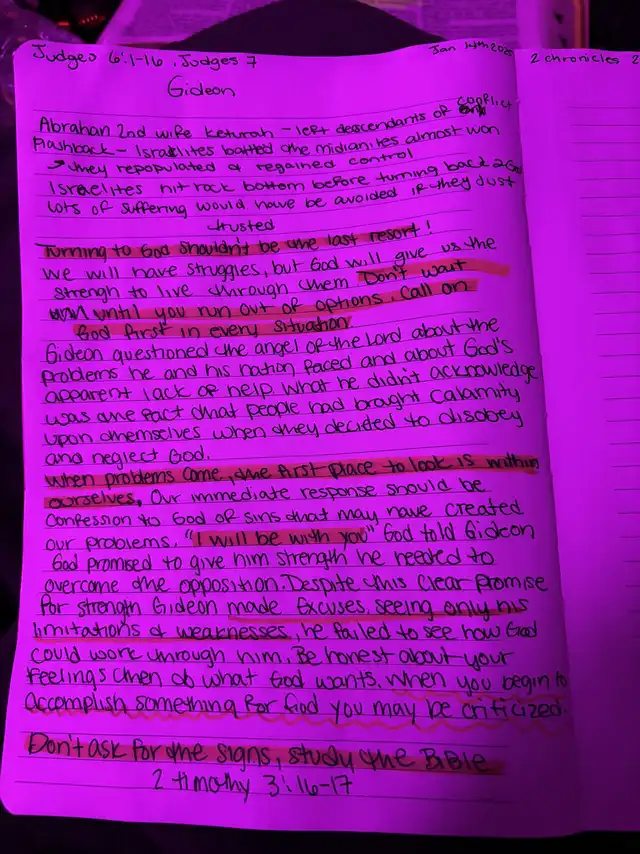 Judges 6:1-16, Judges 7
Jan 14th 202
2 chronicles 2
Gideon
Abrahan 2nd wife keturah - left descendants of conflict
Flashback - Israelites battled the midianites almost won
they repopulated & regained control
Israelites hit rock bottom before turning back 2 God
Lots of suffering would have be avoided if they just
trusted
Turning to God shouldn't be the last resort!
We will have struggles, but God will give us the
strengh to live through them. Don't wait
until you run out of options. Call on
God first in every situation.
Gideon questioned the angel of the Lord about the
problems he and his nation faced and about God's
apparent lack of help. What he didn't acknowledge
was the fact that people had brought calamity
upon themselves when they decided to disobey
and neglect God.
When problems come, the first place to look is within
ourselves. Our immediate response should be
confession to God of sins that may have created
our problems. "I will be with you" God told Gideon
God promised to give him strength he needed to
overcome the opposition. Despite this clear promise
for strength Gideon made excuses, seeing only his
limitations & weaknesses, he failed to see how God
could work through him. Be honest about your
feelings then do what God wants. When you begin to
accomplish something for God you may be criticized.
Don't ask for the signs, study the BiBle
2 timothy 3:16-17